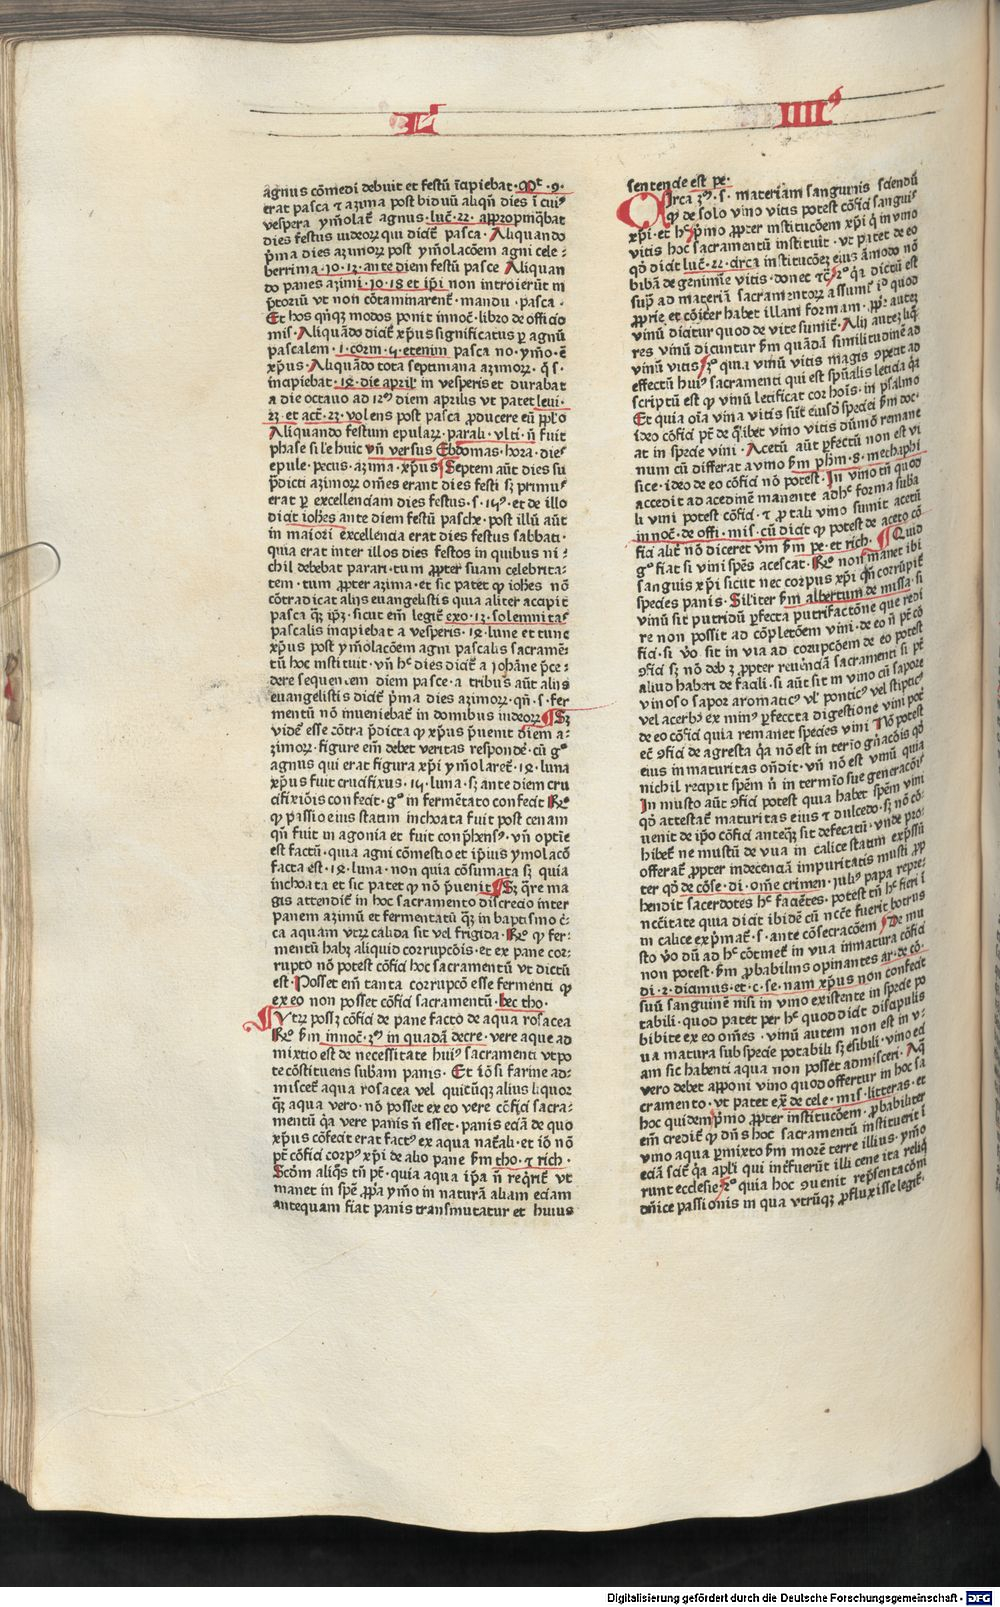 L IIII⁹
agnus cōmedi debuit et festū īcipiebat·Mͭ·9·
erat pasca ⁊ azima post biduū aliqñ dies ī cui⁹
vespera ymolat̄ agnus·luc̄·22·appropinq̄bat
dies festus iudeoꝝ qui dicit̄ pasca·Aliquando
p̄ma dies azimoꝝ post ymolacōem agni cele⸗
berrima·Io·13·ante diem festū pasce Aliquan
do panes azimi·Io·18 et ip̄i non introierūt in
p̄toriū vt non cōtaminarent̄·mandu·pasca·
Et hos qn̄qꝫ modos ponit innoc̄·libro de officio
mis·Aliquādo dicit̄ xp̄us significatus ꝑ agnū
pascalem·1·corin·5·etenim pasca no·ymo·ē
xp̄us·Aliquādo tota septimana azimoꝝ·q̄ s·
incipiebat·14·die april̓ in vesperis et durabat
a die octauo ad 12ᵘ diem aprilis vt patet leui·
23·et act̄·23·volens post pasca ꝓducere eū pp̄lo
Aliquando festum epulaꝝ·parali·vlti·n̄ fuit
phase si l̓e huic vn̄ versus Ebdomas·hora·dies
epule·pecus·azima·xp̄us Septem aūt dies su
p̄dicti azimoꝝ om̄es erant dies festi sꝫ primus
erat ꝑ excellenciam dies festus·s·15ᵘ·et de illo
dicit ioh̄es ante diem festū pasche·post illū aūt
in maiori excellencia erat dies festus sabbati·
quia erat inter illos dies festos in quibus ni⸗
chil debebat parari·tum ꝓpter suam celebrita⸗
tem·tum ꝓpter azima·et sic patet ꝙ ioh̄es nō
cōtradicat alijs euangelistis quia aliter accipit
pasca q̄ꝫ ip̄i·sicut em̄ legit̄ exo·12·solemnitas
pascalis incipiebat a vesperis·14·lune et tunc
xp̄us post ymolacōem agni pascalis sacramē⸗
tū hoc instituit·vn̄ h̄ dies dicit̄ a johāne p̄ce⸗
dere sequentem diem pasce·a tribus aūt alijs
euangelistis dicit̄ p̄ma dies azimoꝝ·qn̄·s·fer
mentū nō inueniebat̄ in domibus iudeoꝝ Sꝫ
videt̄ esse cōtra p̄dicta ꝙ xp̄us p̄uenit diem a⸗
zimoꝝ·figure em̄ debet veritas respondē·cū gͦ
agnus qui erat figura xp̄i ymolaret̄·14·luna
xp̄us fuit crucifixus·15·luna·sꝫ ante diem cru
cifixiōis confecit·gͦ in fermētato confecit Rͦ
ꝙ passio eius statim inchoata fuit post cenam
qn̄ fuit in agonia et fuit conp̄hensꝰ·vn̄ optīe
est factū·quia agni cōmestio et ip̄ius ymolacō
facta est·14·luna·non quia cōsumata sꝫ quia
inchoata et sic patet ꝙ nō p̄uenit Sꝫ q̄re ma
gis attendit̄ in hoc sacramento discrecio inter
panem azimū et fermentatū q̄ꝫ in baptismo c̄⸗
ca aquam vtꝝ calida sit vel frigida·Rͦ ꝙ fer⸗
mentū habꝫ aliquid corrupcōis·et ex pane cor⸗
rupto nō potest cōfici hoc sacramentū vt dictū
est·Posset em̄ tanta corrupcō esse fermenti ꝙ
ex eo non posset cōfici sacramentū·hec tho·
Vtꝝ possꝫ cōfici de pane facto de aqua rosacea
Rͦ ẜm innoc̄·3ᵘ in quadā decre·vere aque ad
mixtio est de necessitate huiꝰ sacramenti vtpo
te cōstituens subam panis·Et iō si farine ad⸗
misceat̄ aqua rosacea vel quitūqꝫ alius liquor
q̄ꝫ aqua vero·nō posset ex eo vere cōfici sacra⸗
mentū q̄a vere panis n̄ esset·panis eciā de quo
xp̄us cōfecit erat factꝰ ex aqua nat̄ali·et iō nō
pt̄ cōfici corpꝰ xp̄i de alio pane ẜm tho·⁊ rich·
Scōm aliq̄s tn̄ pt̄·quia aqua ip̄a n̄ reqrit̄ vt
manet in spē ꝓpa ymo in naturā aliam eciam
antequam fiat panis transmutatur et huius
sentencie est pe·
Circa 3ᵘ·s·materiam sanguinis sciendū
ꝙ de solo vino vitis potest cōfici sanguis
xp̄i·et h̄ p̄mo ꝓpter institucōem xp̄i q̄ in vino
vitis hoc sacramentū instituit·vt patet de eo
qd̓ dicit luc̄·22·circa institucōeꝫ eius āmodo nō
bibā de genimīe vitis·donec ⁊c̄ 2ͦ q̄a dictū est
sup̄ ad materiā sacramentoꝝ assumit̄ id quod
ꝓprie et cōiter habet illam formam·ꝓprͤ auteꝫ
vinū dicitur quod de vite sumit̄·Alij auteꝫ liq̄
res vinū dicuntur ẜm quādā similitudinē ad
vinū vitis 3ͦ quia vinū vitis magis ꝯpetit ad
effectū huiꝰ sacramenti qui est spūalis leticia q̄a
scriptū est ꝙ vinū letificat cor hoīs·in psalmo
Et quia oīa vina vitis sūt eiusd̓ speciei ẜm doc·
ideo cōfici pt̄ de q̄libet vino vitis dūmō remane
at in specie vini·Acetū aūt ꝑfectū non est vi
num cū differat a vino ẜm ph̄m·8·methaphi
sice·ideo de eo cōfici nō potest·In vino tn̄ quod
accedit ad acedinē manente adh̄ forma suba
li vini potest cōfici·⁊ ꝓ tali vino sumit acetū
innoc̄·de offi·mis·cū dicit ꝙ potest de aceto cō
fici alit̄ nō diceret v̄m ẜm pe·et rich· Quid
gͦ fiat si vini spēs acescat·Rͦ non manet ibi
sanguis xp̄i sicut nec corpus xp̄i qn̄ corrūpit̄
species panis·Silīter ẜm albertum de missa·si
vinū sit putridū ꝑfecta putrifactōne que redi
re non possit ad cōpletōem vini·de eo n̄ pt̄ cō
fici·si v̄o sit in via ad corupcōem de eo potest
ꝯfici sꝫ nō deb ꝫ ꝓpter reuēnciā sacramenti si pt̄
aliud haberi de facili·si aūt sit in vino cū sapore
vinoso sapor aromaticꝰ vl̓ ponticꝰ vel stipticꝰ
vel acerbꝰ ex minꝰ ꝑfeccta digestione vini pot̄
de eo cōfici quia remanet species vini Nō potest
ec̄ ꝯfici de agresta q̄a nō est in termīo gn̄acōis qd̓
eius inmaturitas on̄dit·vn̄ nō est vinū quia
nichil recipit spēm n̄ in termīo sue generacōis
In musto aūt ꝯfici potest quia habet spēm vini
qd̓ attestat̄ maturitas eius ⁊ dulcedo·sꝫ nō cō⸗
uenit de ip̄o cōfici anteq̄ꝫ sit defecatū·vnde pro⸗
hibet̄ ne mustū de vua in calice statim exp̄ssū
offerat̄ ꝓpter indecenciā impuritatis musti ꝓp
ter qd̓ de cōse·di·om̄e crimen·iuliꝰ papa repre⸗
hendit sacerdotes h̄ faciētes·potest tn̄ h̄ fieri ī
nccitate quia dicit ibidē cū ncc̄e fuerit botrus
in calice exp̄mat̄·s·ante cōsecracōem De mu
sto v̄o dū ad h̄ cōtinet̄ in vua inmatura cōfici
non potest·ẜm ꝓbabilius opinantes ar·de cō·
di·2·dicimus·et c·se·nam xp̄us non confecit
suū sanguinē nisi in vino existente in specie po
tabili·quod patet per h̄ quod dicit discipulis
bibite ex eo om̄es·vinū autem non est in v⸗
ua matura sub specie potabili sꝫ esibili·vino eci
am sic habenti aqua non posset admisceri·Aq̄
vero debet apponi vino quod offertur in hoc sa
cramento·vt patet ex̄ de cele·mis·litteras·et
hoc quidem p̄mo ꝓpter institucōem·ꝓbabiliter
em̄ credit̄ ꝙ dn̄s hoc sacramentū instituerit ī
vino aqua ꝑmixto ẜm morē terre illius·ymo
eciā scit̄ q̄a apl̓i qui int̄fuerūt illi cene ita reliq̄
runt ecclesie 2ͦ quia hoc ꝯuenit rep̄sentacōni
dn̄ice passionis in qua vtrūqꝫ ꝓfluxisse legit̄·
Digitalisierung gefördert durch die Deutsche Forschungsgemeinschaft · DFG